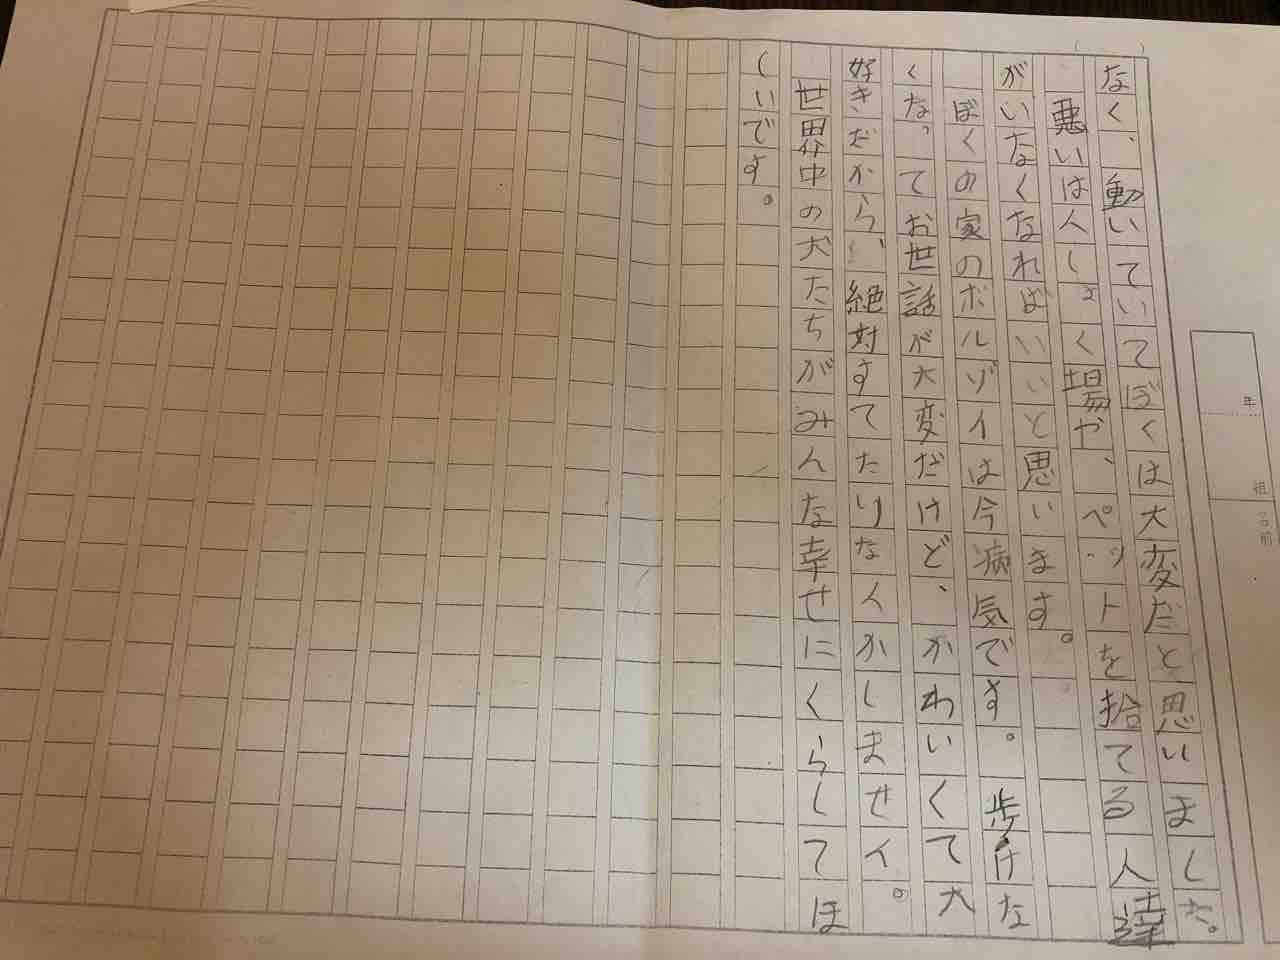 なく、動いていてぼくは大変だと思いました。
悪いは人しょく場や、ペットを拾てる人達
がいなくなればいいと思います。
ぼくの家のボルゾイは今病気です。歩けな
くなってお世話が大変だけど、かわいくて大
好きだから、絶対すてたりなんかしません。
世界中の犬たちがみんな幸せにくらしてほ
しいです。
年
組
名前